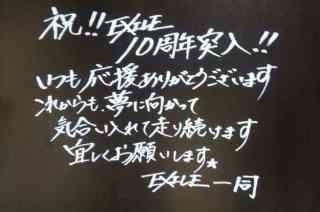 祝!! EXILE
10周年突入!!
いつも応援ありがとうございます
これからも、夢に向かって
気合い入れて走り続けます
宜しくお願いします★
EXILE 一同